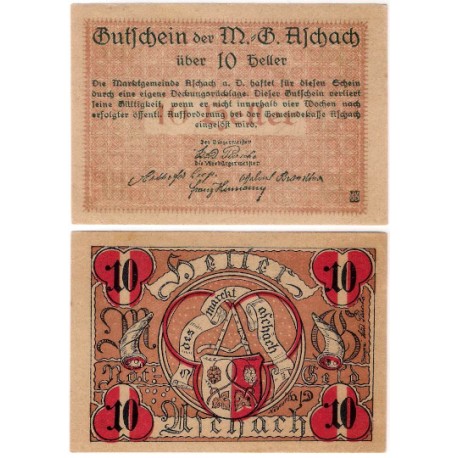 Gutschein der M.-G. Aschach
über 10 Heller
Die Marktgemeinde Aschach a. D. haftet für diesen Schein
durch eine eigene Deckungsrücklage. Dieser Gutschein verliert
seine Gültigkeit, wenn er nicht innerhalb vier Wochen nach
erfolgter öffentl. Aufforderung bei der Gemeindekasse Aschach
eingelöst wird.
Der Bürgermeister
Die Vizebürgermeister
10 Heller 10
des markt aschach
M. G.
Not Geld
a/D
10 Aschach 10